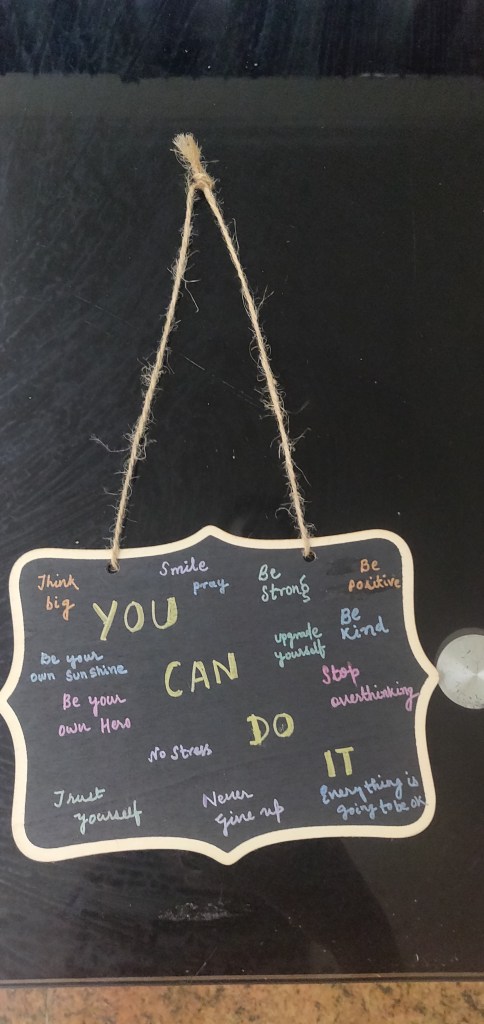 Smile
pray
Think
big
Be
Strong
Be
Positive
YOU
Be
Kind
upgrade
yourself
Be your
own Sunshine
CAN
Stop
overthinking
Be your
own Hero
DO
No Stress
IT
Trust
yourself
Never
give up
Everything is
going to be ok